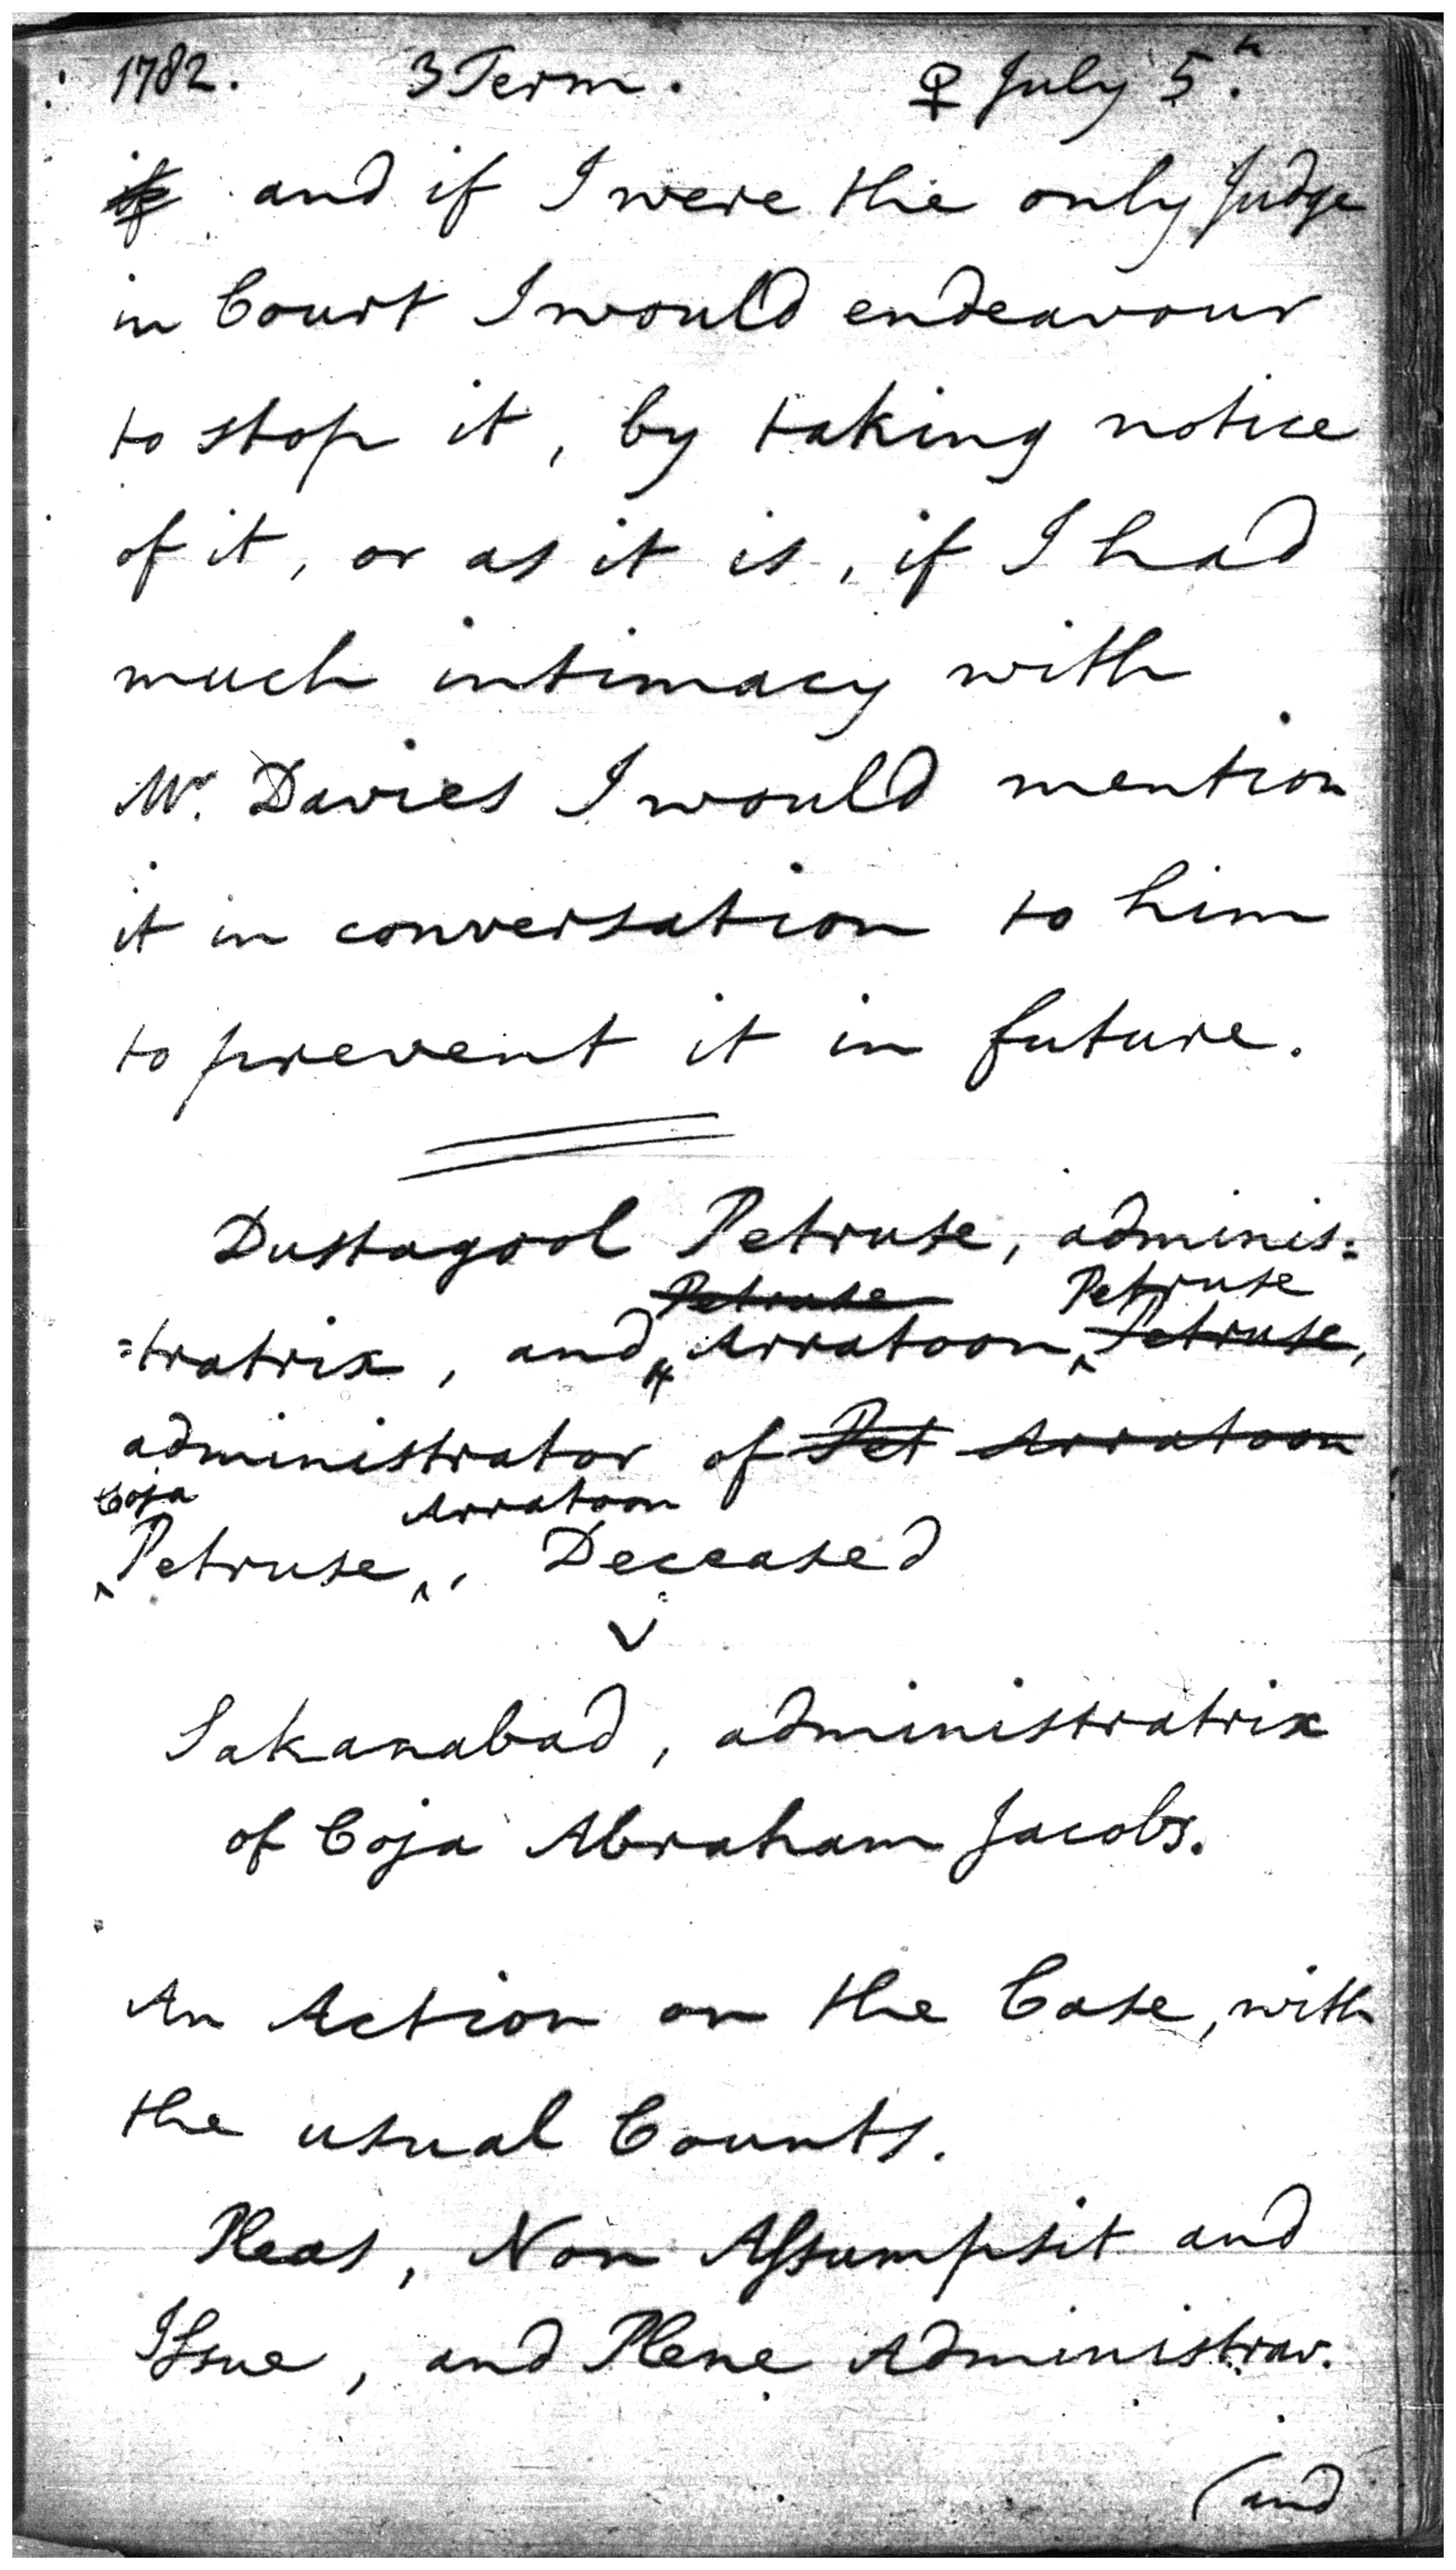 1782. 3 Term. ♀ July 5.th
if and if I were the only Judge
in Court I would endeavour
to stop it, by taking notice
of it, or as it is, if I had
much intimacy with
Mr. Davies I would mention
it in conversation to him
to prevent it in future.
Dustagool Petruse, adminis:
Petruse Petruse
:tratrix, and Arratoon, Petruse,
administrator of Pet Arratoon
Coja Arratoon
Petruse, Deceased
v
Sakanabad, administratrix
of Coja Abraham Jacobs.
An Action on the Case, with
the usual Counts.
Pleas, Non Assumpsit and
Issue, and Plene Administrav.
(and